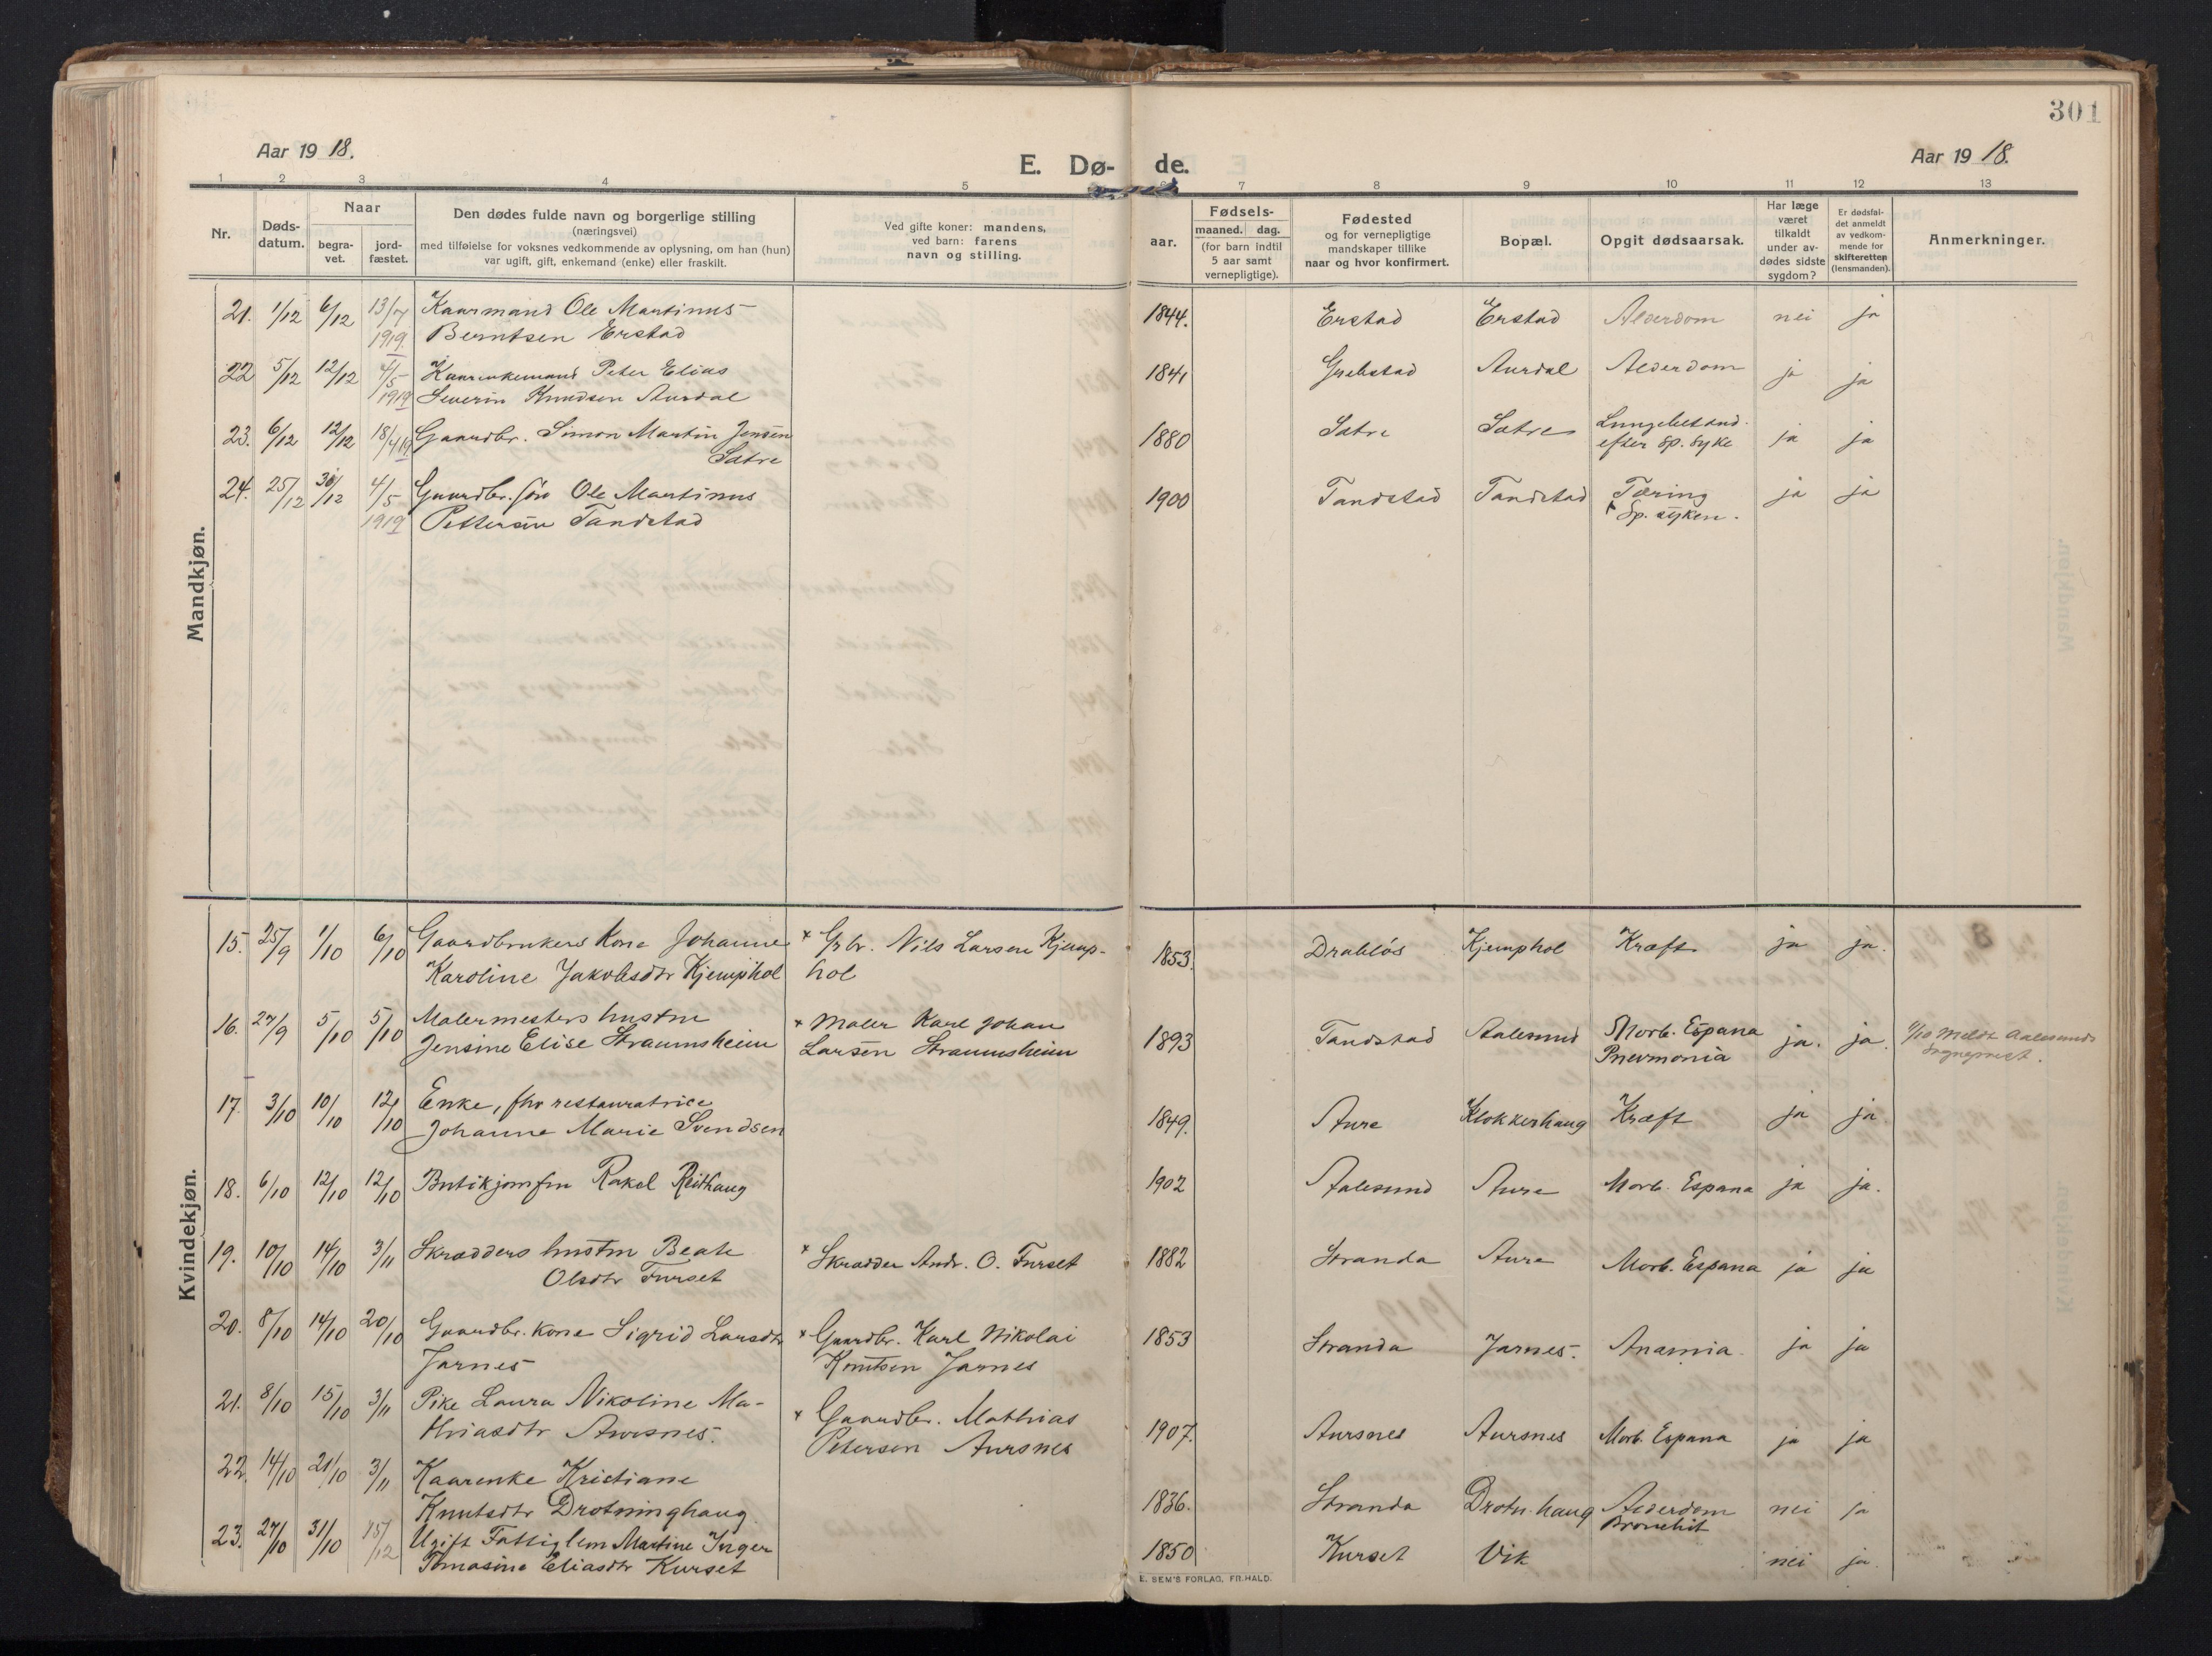 301
Aar 1918.
E. Dø- de.
Aar 1918.
1 2 3 4 5 6 7 8 9 10 11 12 13
Nr.
Døds-
datum.
Naar
begra-
vet.
jord-
fæstet.
Den dødes fulde navn og borgerlige stilling
(næringsvei)
med tilføielse for voksnes vedkommende av oplysning, om han (hun)
var ugift, gift, enkemand (enke) eller fraskilt.
Ved gifte koner: mandens,
ved barn: farens
navn og stilling.
aar.
Fødsels-
maaned. dag.
(for barn indtil
5 aar samt
vernepligtige).
Fødested
og for vernepligtige
mandskaper tillike
naar og hvor konfirmert.
Bopæl.
Opgit dødsaarsak.
Har læge
været
tilkaldt
under av-
dødes sidste
sygdom?
Er dødsfal-
det anmeldt
av vedkom-
mende for
skifteretten
(lensmanden).
Anmerkninger.
Mandkjøn.
21. 1/12 6/12 13/7 Kaarmand Ole Martinus 1844. Erstad Erstad Alderdom nei ja
1919. Berntsen Erstad
22 5/12 12/12 4/5 Kaarenkemand Peter Elias 1841 Grebstad Aurdal Alderdom ja ja
1919 Severin Knudsen Aurdal
23. 6/12 12/12 18/4 19 Gaardbr. Simon Martin Jensen 1880 Sætre Sætre Lungebetænd. ja ja
Sætre efter sp. syke
24. 25/12 30/12 4/5 Gaardbr. søn Ole Martinus 1900 Tandstad Tandstad Tæring ja ja
1919 Pettersen Tandstad Sp. syken.
Kvindekjøn.
15. 25/9 1/10 6/10 Gaardbrukers Kone Johanne * Grbr. Nils Larsen Kjemp- 1853. Drabløs Kjemphol Kræft ja ja. 8
Karoline Jakobsdtr Kjemphol hol
16. 27/9 5/10 5/10 Malermesters hustru * Maler Karl Johan 1893 Tandstad Aalesund Morb. Espana ja. ja. 9/10 Meldt Aalesunds
Jensine Elise Straumsheim Larsen Straumsheim Pnevmonia Sogneprest.
17. 3/10 10/10 12/10 Enke, fhv restauratrice 1849. Aure Klokkerhaug Kræft ja ja.
Johanne Marie Svendsen
18. 6/10 12/10 12/10 Butikjomfru Rakel Reithaug 1902 Aalesund Aure Morb. Espana ja ja.
19. 10/10 14/10 3/11 Skrædders hustru Beate * Skrædder Andr. O. Furset 1882 Stranda Aure Morb. Espana ja ja
Olsdtr Furset
20. 8/10 14/10 20/10 Gaardbr. kone Sigrid Larsdtr * Gaardbr. Karl Nikolai 1853 Stranda Jarnes. Anæmia ja ja
Jarnes Knutsen Jarnes
21. 8/10 15/10 3/11 Pike Laura Nikoline Ma- * Gaardbr. Mathias 1907. Aursnes Aursnes Morb. Espana ja ja
thiasdtr Aursnes. Petersen Aursnes
22. 14/10 21/10 3/11 Kaarenke Kristiane 1836. Stranda Drotn. haug Alderdom nei ja
Knutsdtr Drotninghaug. Bronchit
23. 27/10 31/10 15/12 Ugift Fattiglem Martine Inger 1850 Kurset Vik nei ja.
Tomasine Eliasdtr Kurset
E. SEM'S FORLAG, FR.HALD.